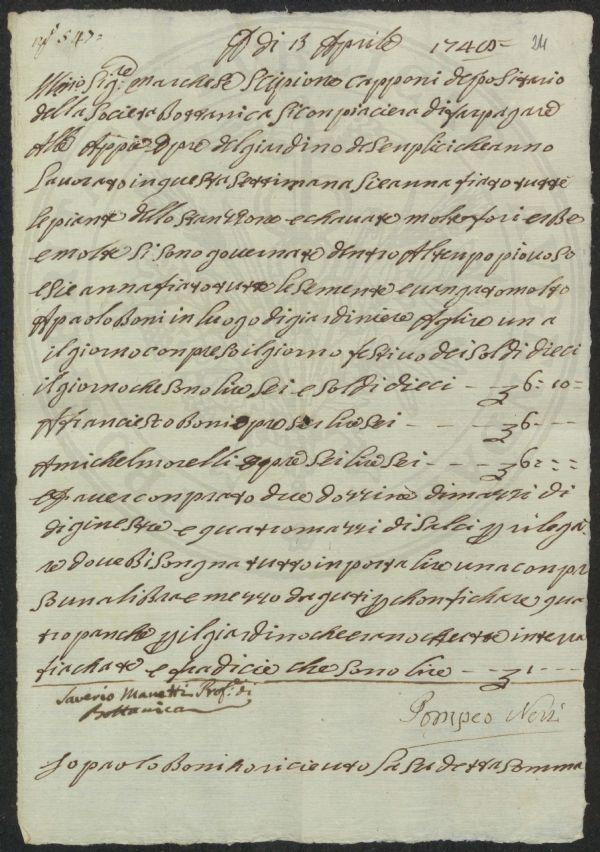 A di 13 Aprile 1748 24
Sigre Marchese Scipione Capponi depositario
della Societa Bottanica si conpiacera di far pagare
Alle Appie opre del giardino de senplici che anno
lavorato in questa settimana si e annafiato tutte
le piante dello stanzone e chavate molte fori e Be
e molte si sono governate dentro Al tenpo piovoso
e si e annafiato tutte le semente e vangato molto
A paolo Boni in luogo di giardiniere A lire una
il giorno conpreso il giorno festivo dei soldi dieci
il giorno che sono lire sei e soldi dieci - - 6 = 10 =
A franciesco Boni opre sei lire sei - - - 6 - - -
A michel morelli opre sei lire sei - - - 6 = = =
e p aver conprato due dozzine di mazzi di
di ginestre e quatro mazzi di salci p rilega
re dove Bisongna tutto inporta lire una conpr
so una libra e mezzo daguti p chonfichare qua
tro panche p il giardino che erano
e fradicie che sono lire - - - 1 - - -
Saverio Manetti Profe. di
Bottanica
Pompeo Neri
Io paolo Boni o ricieuto la su detta somma